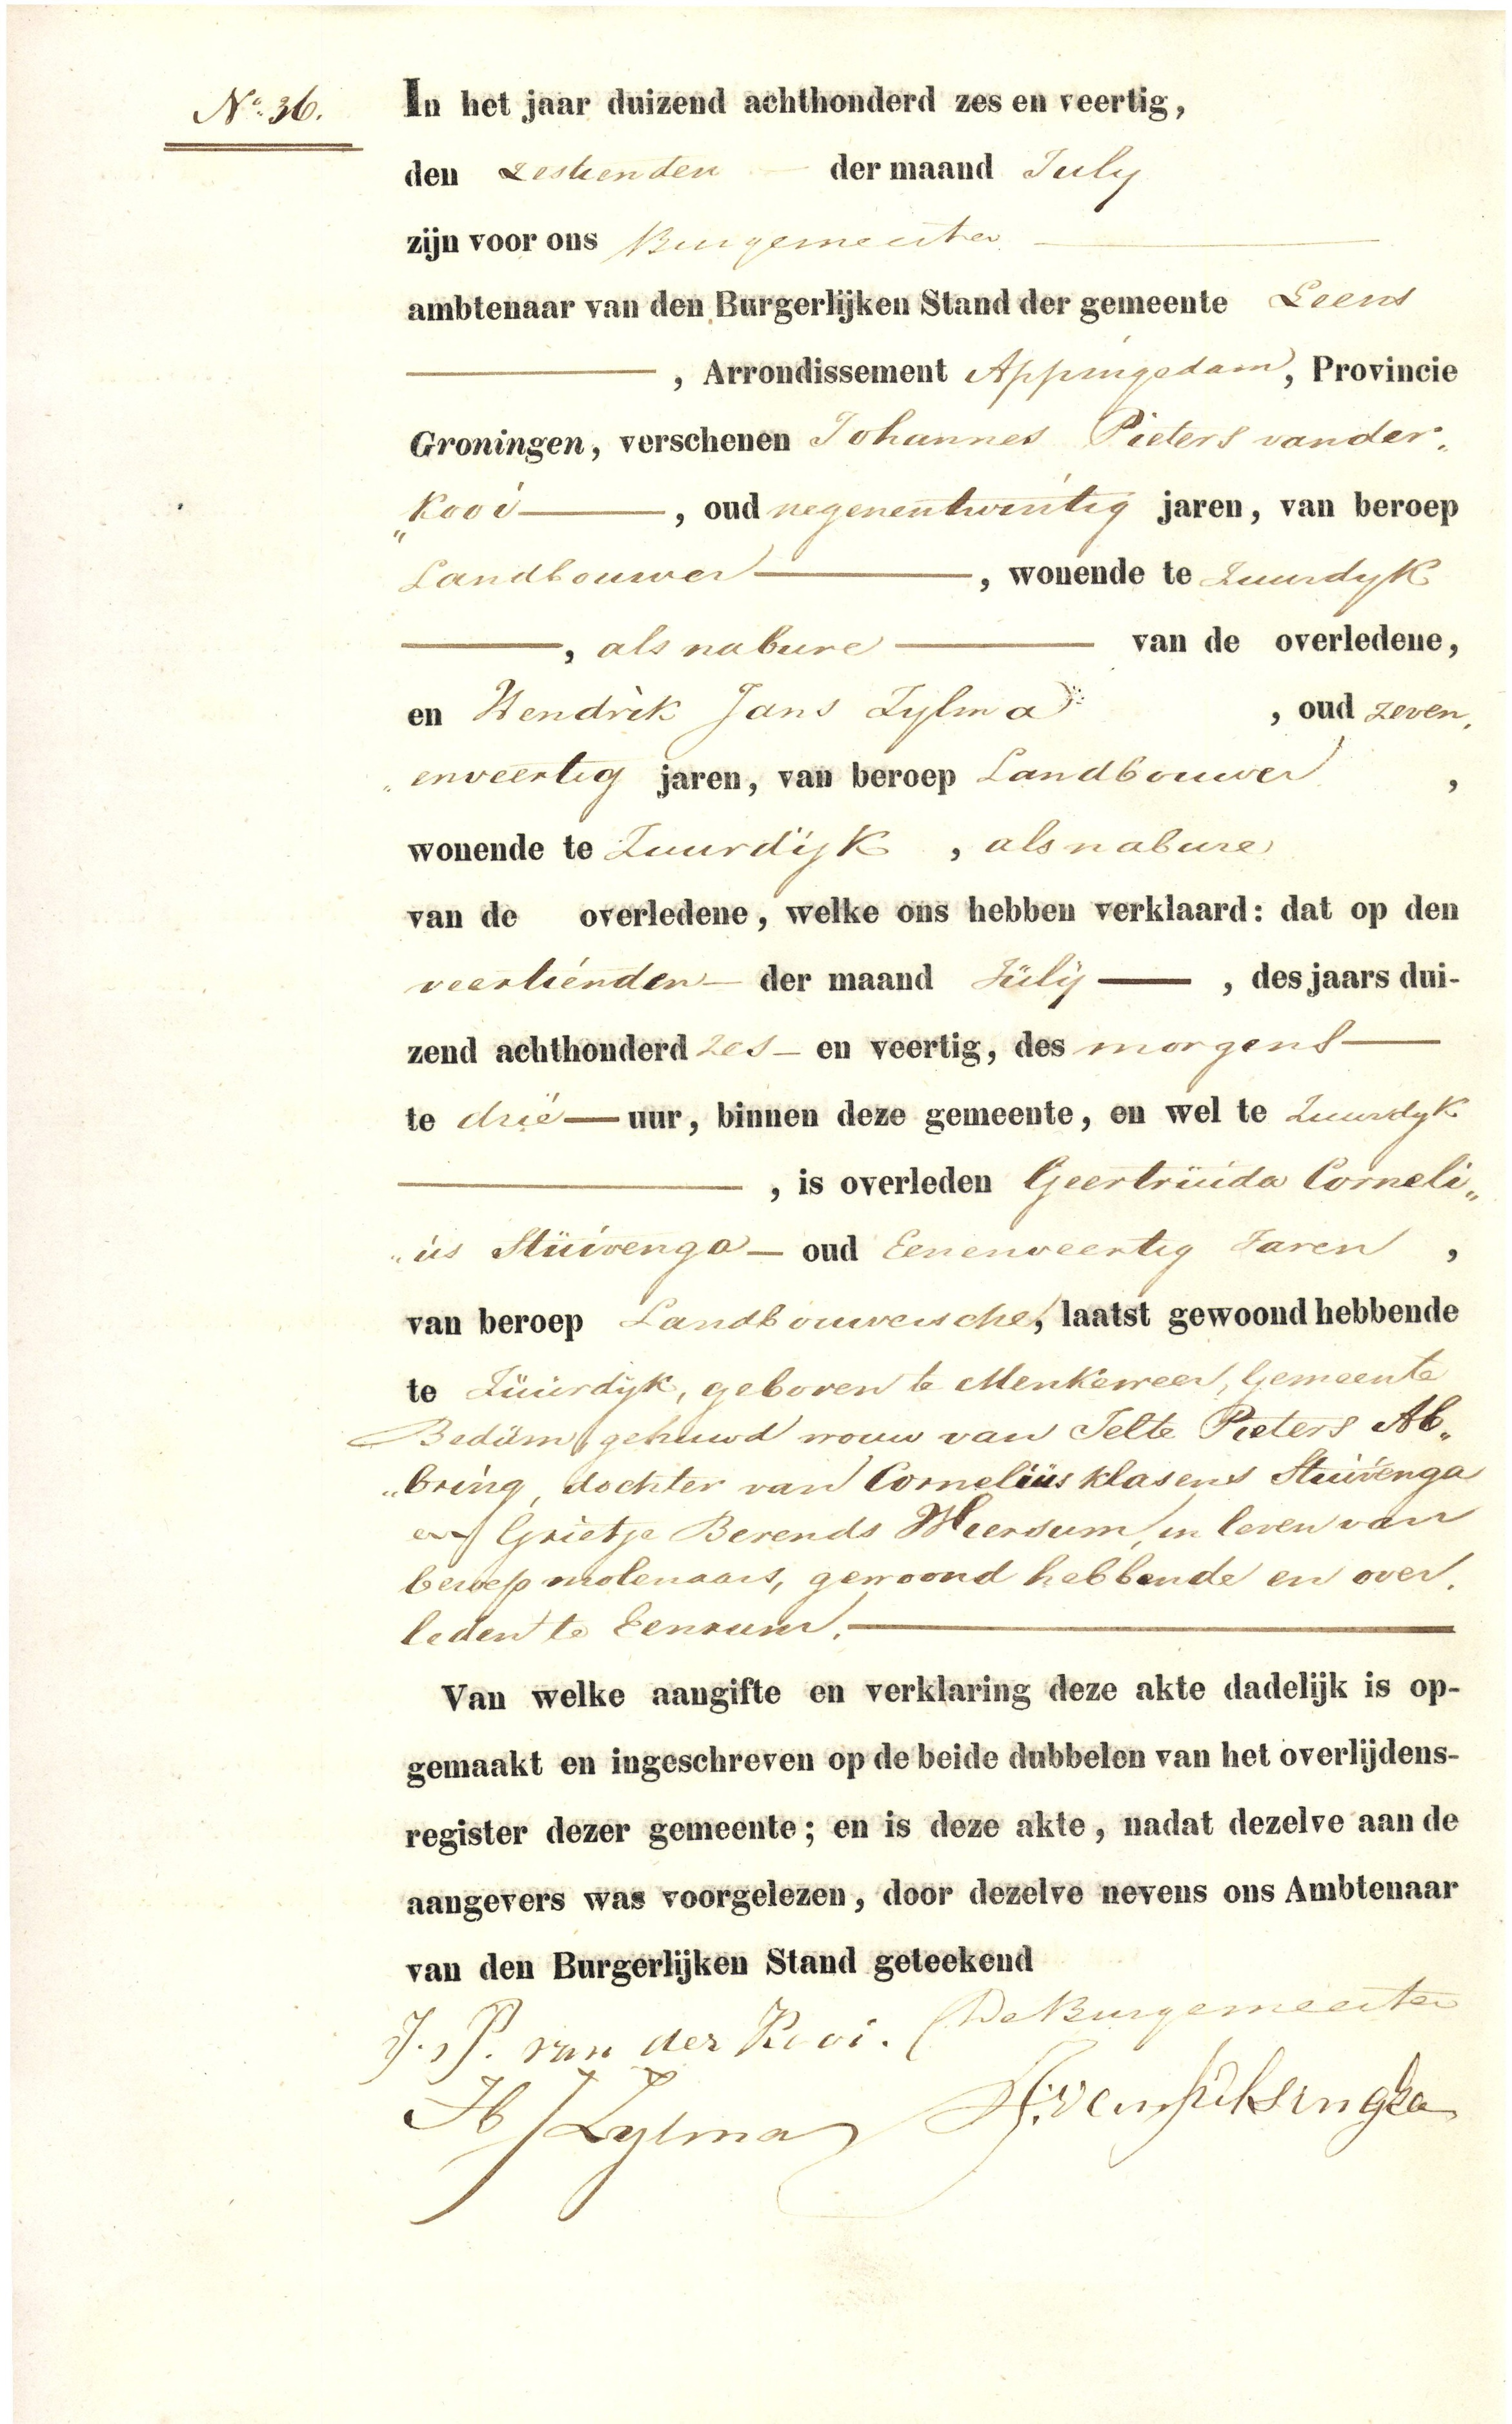 No. 36.
In het jaar duizend achthonderd zes en veertig,
den zestienden der maand July
zijn voor ons Burgemeester
ambtenaar van den Burgerlijken Stand der gemeente Leens
, Arrondissement Appingedam, Provincie
Groningen, verschenen Johannes Pieters vander„
„Kooi, oud negenentwintig jaren, van beroep
Landbouwer, wonende te Zuurdyk
, als nabure van de overledene,
en Hendrik Jans Zylma, oud zeven„
„enveertig jaren, van beroep Landbouwer,
wonende te Zuurdijk, als nabure
van de overledene, welke ons hebben verklaard: dat op den
veertienden der maand Julij, des jaars dui-
zend achthonderd zes en veertig, des morgens
te drie uur, binnen deze gemeente, en wel te Zuurdyk
, is overleden Geertruida Corneli„
„us Stuivenga oud Eenenveertig Jaren,
van beroep Landbouwersche, laatst gewoond hebbende
te Zuurdijk, geboren te Menkeweer, Gemeente
Bedum, gehuwd vrouw van Jelte Pieters Ab„
„bring, dochter van Cornelius klasens Stuivenga
en Grietje Berends Weersum, in leven van
beroep molenaars, gewoond hebbende en over„
leden te Eenrum.
Van welke aangifte en verklaring deze akte dadelijk is op-
gemaakt en ingeschreven op de beide dubbelen van het overlijdens-
register dezer gemeente; en is deze akte, nadat dezelve aan de
aangevers was voorgelezen, door dezelve nevens ons Ambtenaar
van den Burgerlijken Stand geteekend
J. P. van der Kooi. De Burgemeester
H J Zylma